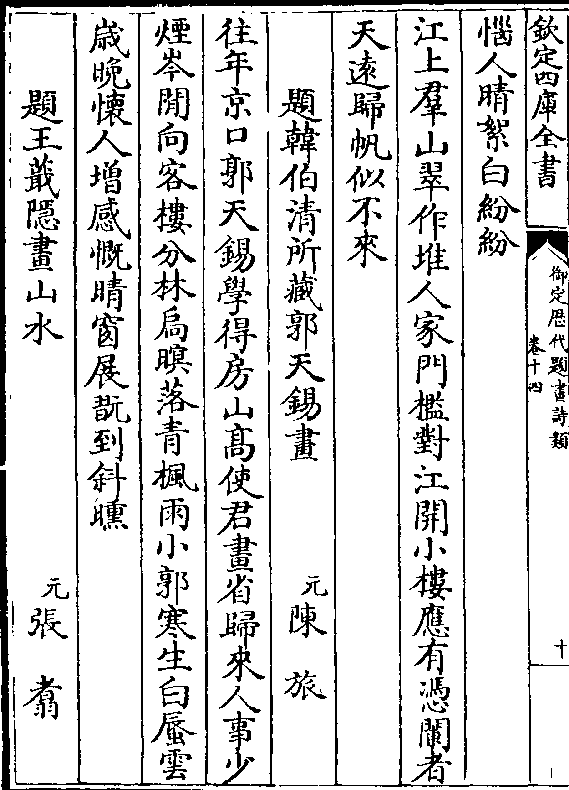 欽定四庫全書
御定歴代題畫詩類
卷十四
十
惱人晴絮白紛紛
江上羣山翠作堆人家門檻對江開小樓應有憑闌者
天逺歸帆似不來
題韓伯清所藏郭天錫畫
元
陳旅
往年京口郭天錫學得房山髙使君畫省歸來人事少
煙岑閒向客樓分林扃暝落青楓雨小郭寒生白蜃雲
歳晚懷人增感慨晴窗展翫到斜曛
題王蕺隱畫山水
元
張翥